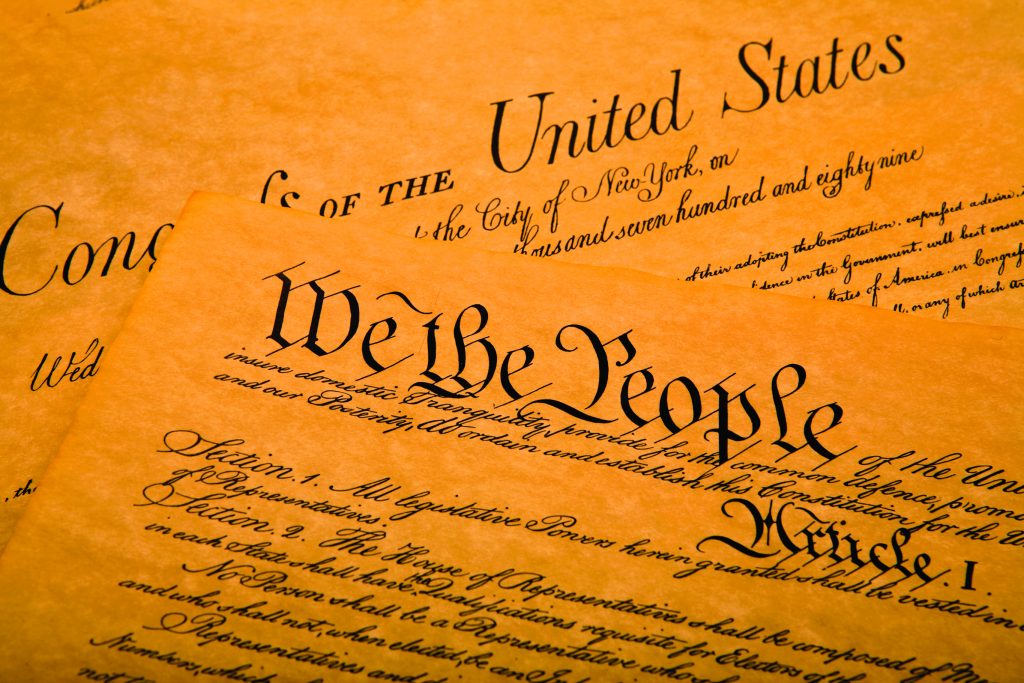 Cong s OF THE United States
the City of New York, on
thousand seven hundred and eighty nine
of their adopting the Constitution, expressed a desire,
dence in the Government, will best ensu
States of America, in Congress
or any of which
Wed
We the People of the Uni
insure domestic Tranquility, provide for the common defence, promo
and our Posterity, do ordain and establish this Constitution for the
Article. I.
Section. 1. All legislative Powers herein granted shall be vested in
of Representatives.
Section. 2. The House of Representatives shall be composed of
in each State shall have the Qualifications requisite for Electors of
No Person shall be a Representative who
and who shall not, when elected, be an
Representatives and
Numbers, which
not